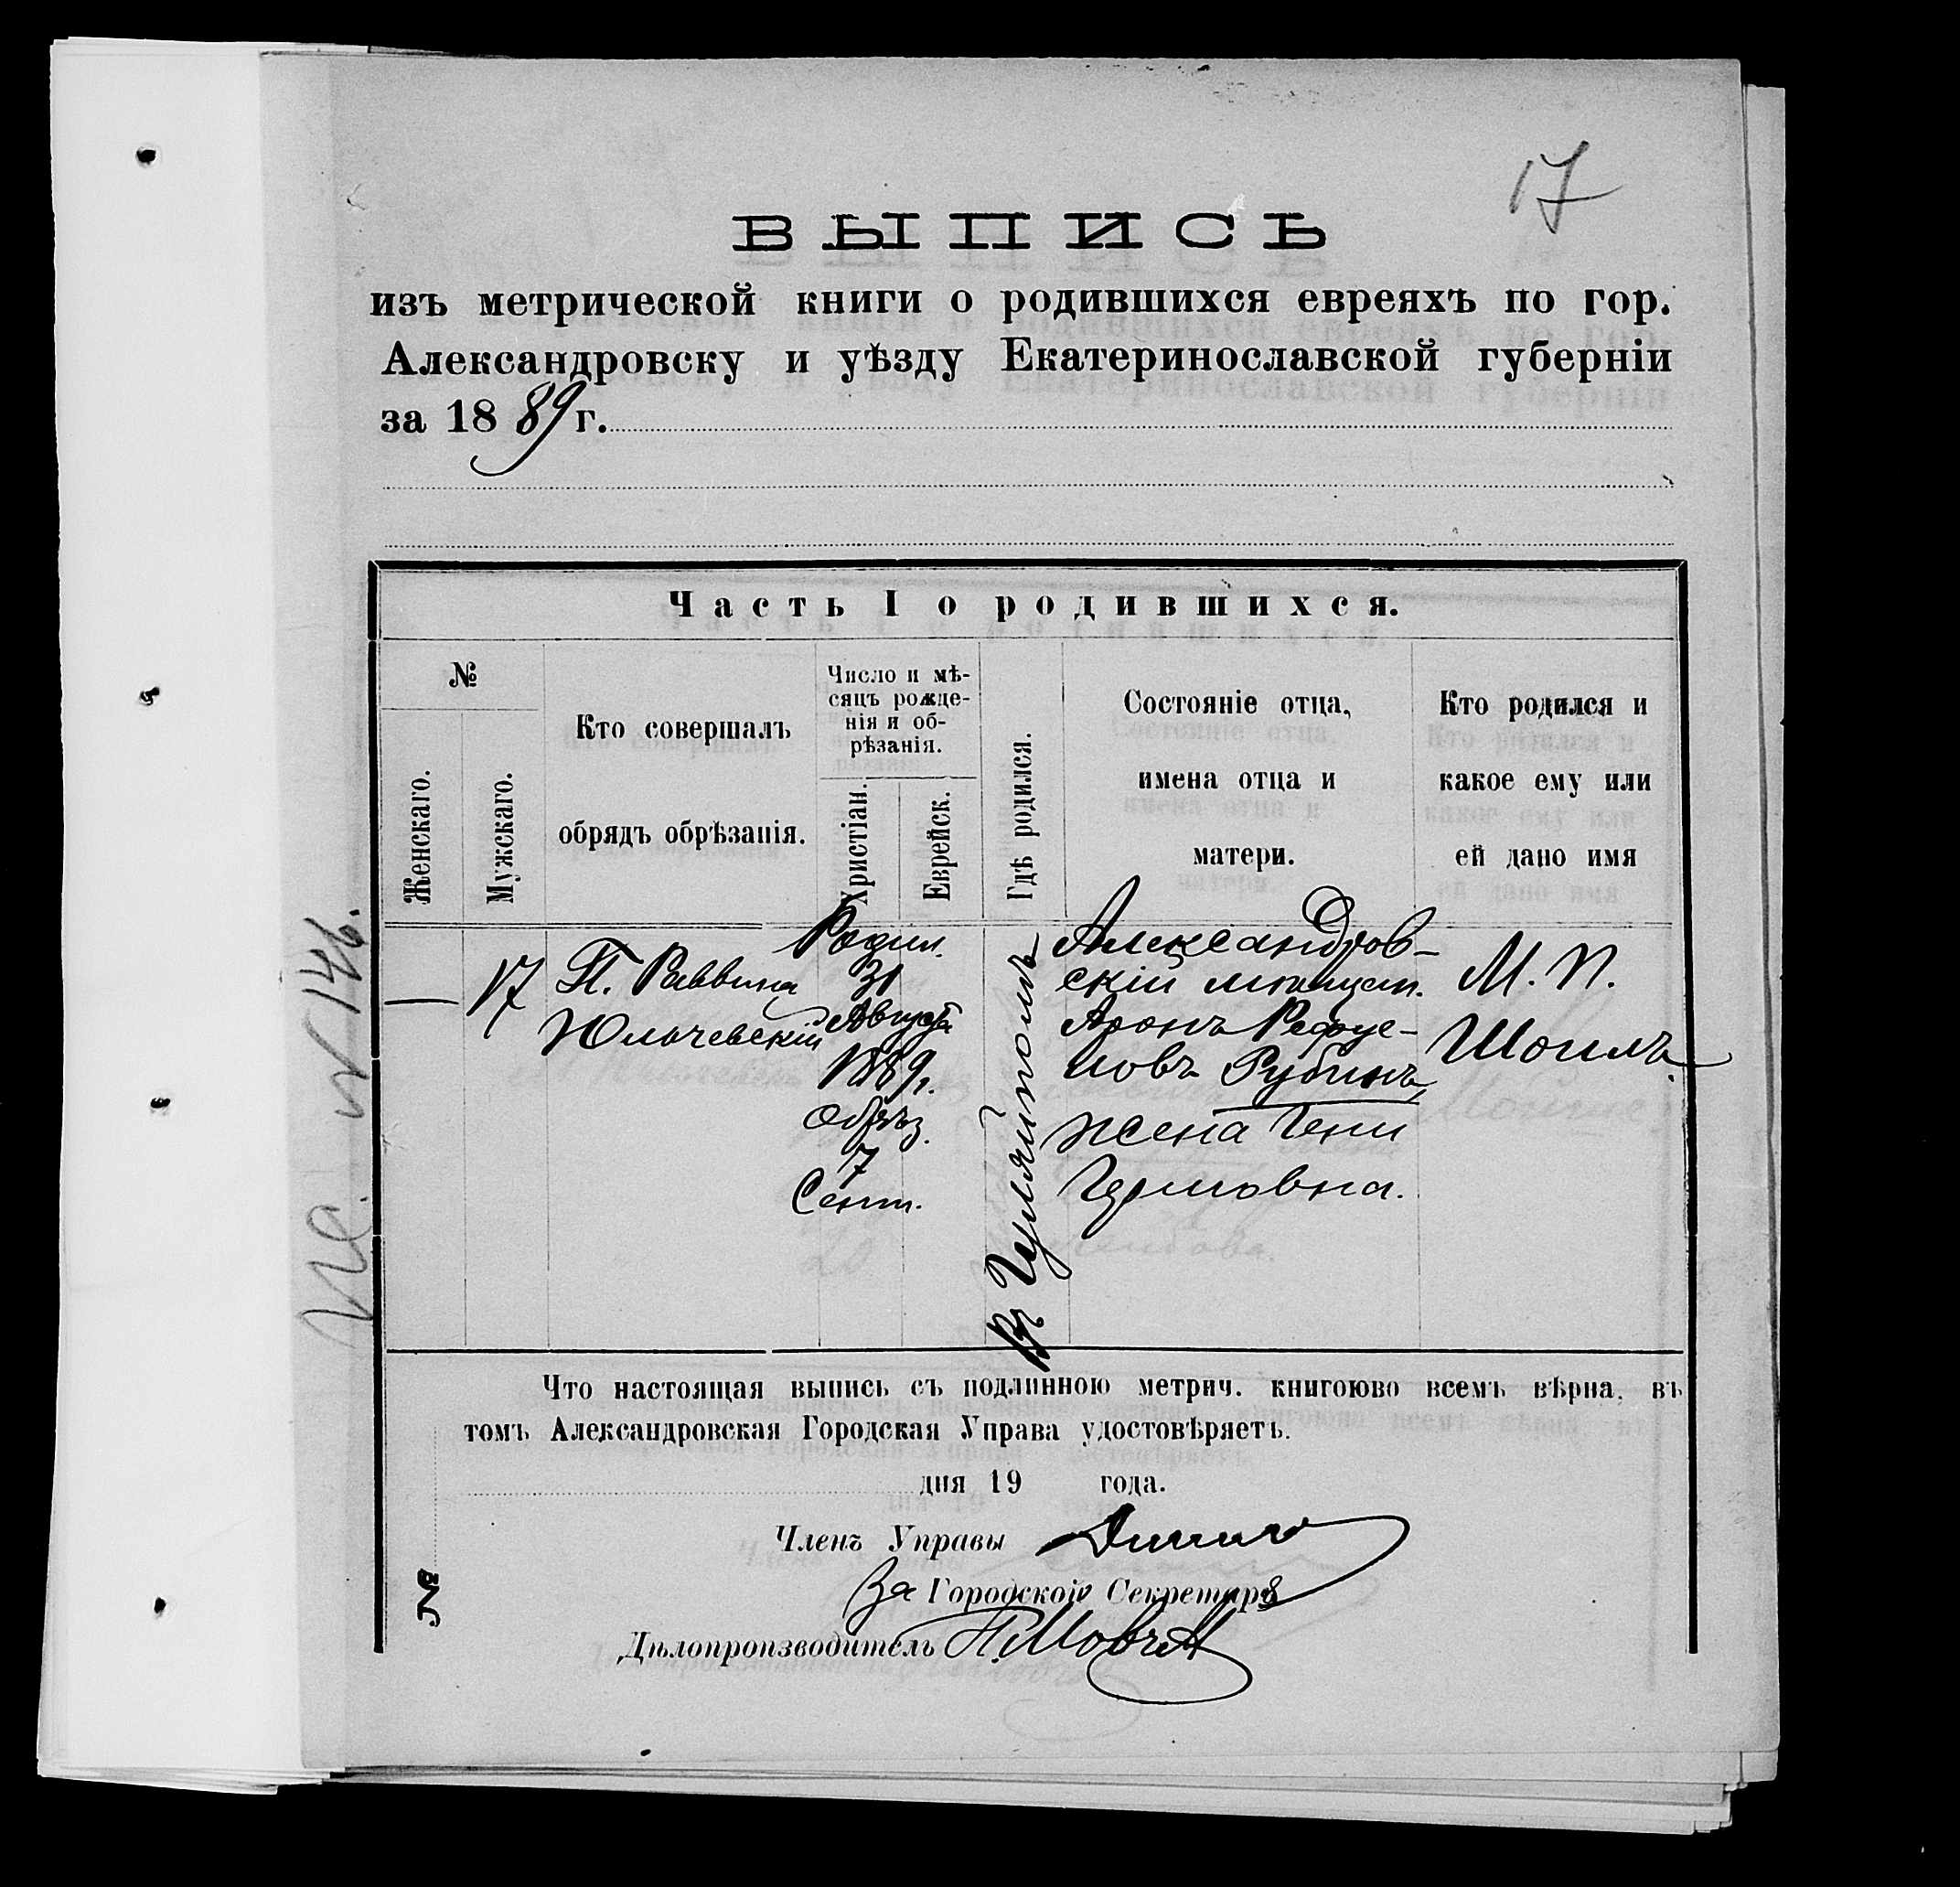 17
ВЫПИСЬ
изъ метрической книги о родившихся евреяхъ по гор.
Александровску и уѣзду Екатеринославской губерніи
за 1889 г.
Часть I о родившихся.
№
Женскаго.
Мужскаго.
Кто совершалъ
обрядъ обрѣзанія.
Число и мѣ-
сяцъ рожде-
нія и об-
рѣзанія.
Христіан.
Еврейск.
Гдѣ родился.
Состояніе отца,
имена отца и
матери.
Кто родился и
какое ему или
ей дано имя
—
17
П. Раввина
Юльчевскій
Родил.
31
Августа
1889 г.
Обрѣз.
7
Сент.
Въ Гуляйполѣ
Александров-
скій мѣщан.
Аронъ
Рубинъ,
жена
М. П.
Шоилъ.
№ 146.
Что настоящая выпись съ подлинною метрич. книгоюво всемъ вѣрна, въ
томъ Александровская Городская Управа удостовѣряетъ.
дня 19 года.
Членъ Управы
За Городской Секретаря
Дѣлопроизводитель
№